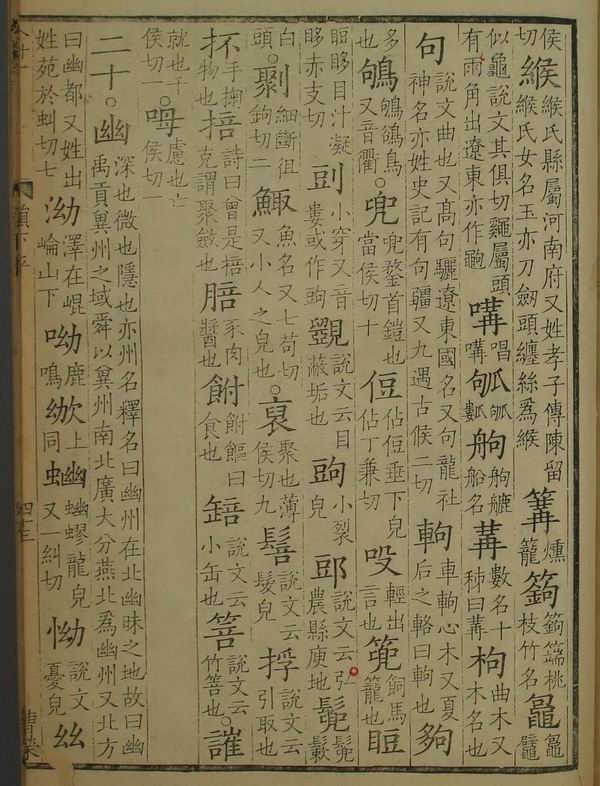 侯切緱緱氏縣屬河南府又姓孝子傳陳留緱氏女名玉亦刀劒頭纏絲爲緱篝燻籠
似龜說文其俱切鼅屬頭有兩角出遼東亦作船名冓數名十秭曰冓枸曲木又木名也
句說文曲也又高句驪遼東國名又句龍社神名亦姓史記有句彊又九遇古候二切軥車軥心木又夏后之輅曰軥也夠
多也鴝鴝鵒鳥又音衢。兜兜鍪首鎧也當侯切十侸佔侸垂下皃佔丁兼切吺輕出言也篼飼馬籠也䀺
䁓䀺目汁凝䀺赤支切剅小穿又音婁或作㓱覴說文云目蔽垢也㓱小裂皃郖說文云弘農縣庾地䰒髮
白頭。剶細斷徂鉤切二鯫魚名又七苟切又小人之皃也。裒聚也薄侯切九髻說文云髮皃捊說文云引取也
抔手掬物也掊詩曰曾是掊克謂聚斂也䏽豕肉醬也䬏䬏饇曰食也㰴說文云小缶也箁說文云竹箁也。䜼
就也千侯切一。呣慮也亡侯切一
二十。幽深也微也隱也亦州名釋名曰幽州在北幽昧之地故曰幽禹貢冀州之域舜以冀州南北廣大分燕北爲幽州又北方
曰幽都又姓出姓苑於虯切七泑澤在崐崘山下呦鹿鳴㕱上同蚴蚴蟉龍皃又一糾切怮說文憂皃𢆶